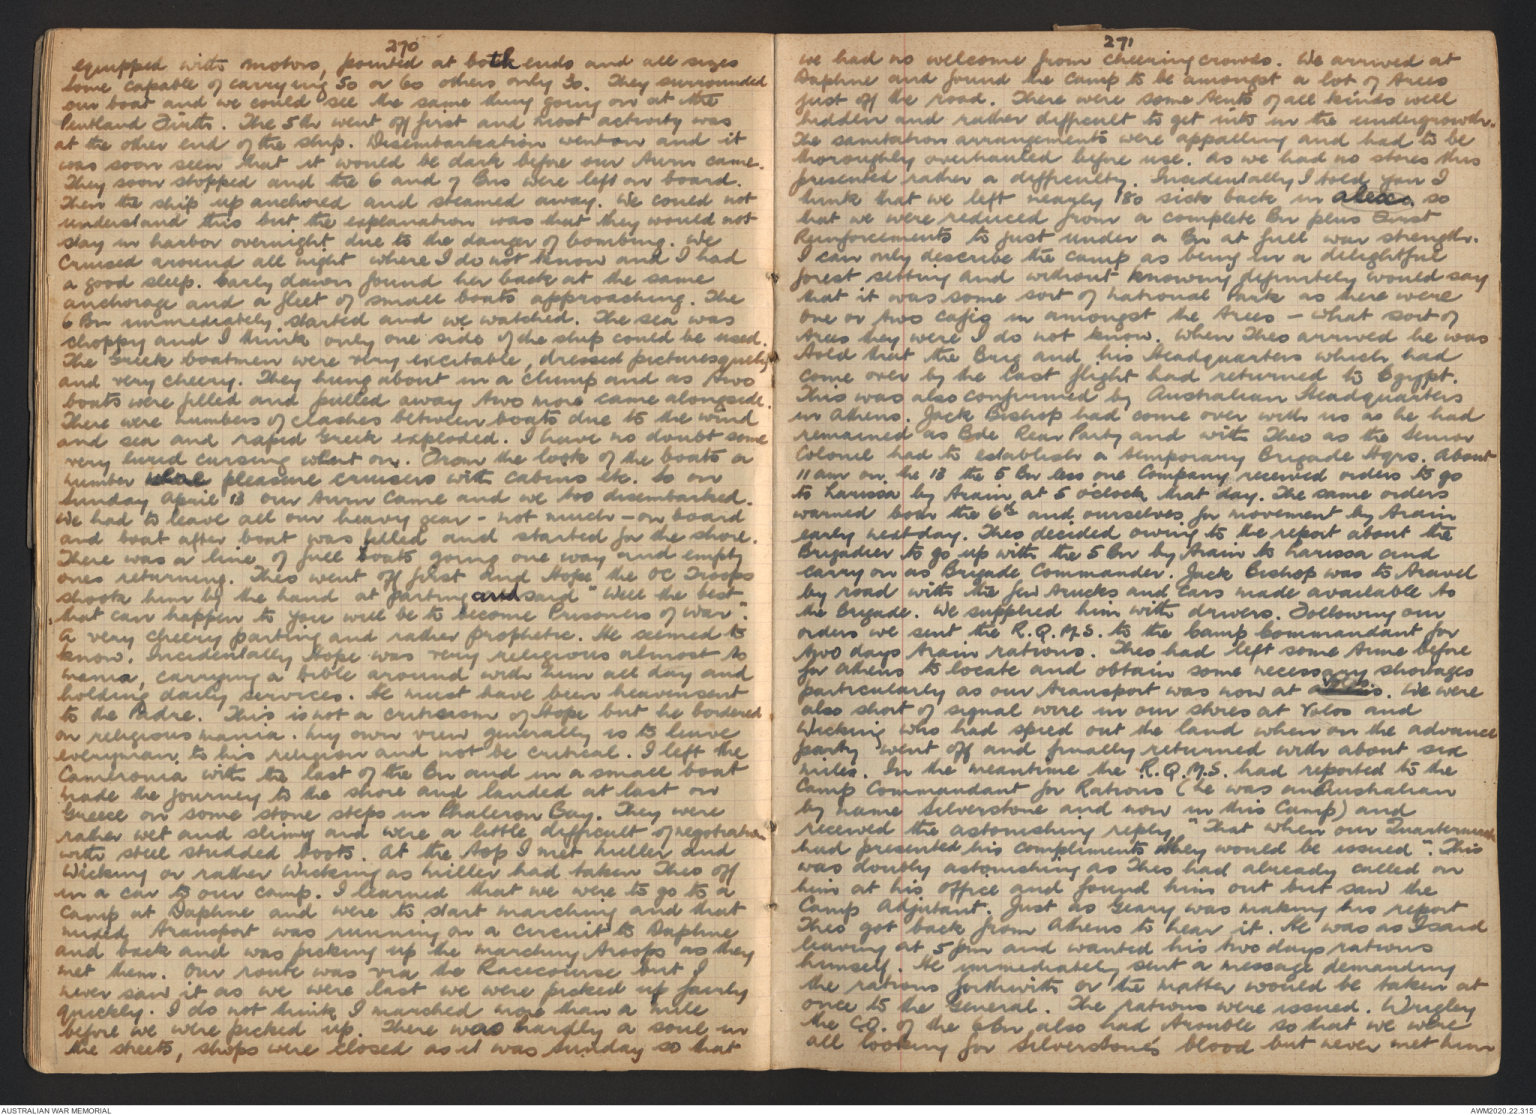 270
equipped with motors, pointed at both ends and all sizes
some capable of carrying 50 or 60 others only 30. They surrounded
our boat and we could see the same thing going on at the
Pentland Firth. The 5th went off first and most activity was
at the other end of the ship. Disembarkation went on and it
was soon seen that it would be dark before our turn came.
They soon stopped and the 6 and 7 Bns were left on board.
Then the ship up anchored and steamed away. We could not
understand this but the explanation was that they would not
stay in harbor overnight due to the danger of bombing. We
cruised around all night where I do not know and I had
a good sleep. Early dawn found her back at the same
anchorage and a fleet of small boats approaching. The
6 Bn immediately started and we watched. The sea was
choppy and I think only one side of the ship could be used.
The Greek boatmen were very excitable, dressed picturesquely
and very cheery. They hung about in a clump and as two
boats were filled and pulled away two more came alongside.
There were numbers of clashes between boats due to the wind
and sea and rapid Greek exploded. I have no doubt some
very lurid cursing went on. From the look of the boats a
number were pleasure cruisers with cabins etc. So on
Sunday April 13 our turn came and we too disembarked.
We had to leave all our heavy gear - not much - on board
and boat after boat was filled and started for the shore.
There was a line of full boats going one way and empty
ones returning. Theo went off first and Hope the OC Troops
shook him by the hand at parting and said "Well the best
that can happen to you will be to become Prisoners of War".
A very cheery parting and rather prophetic. He seemed to
know. Incidentally Hope was very religious almost to
mania, carrying a bible around with him all day and
holding daily services. He must have been heavensent
to the Padre. This is not a criticism of Hope but he bordered
on religious mania. My own view generally is to leave
everyman to his religion and not be critical. I left the
Cameronia with the last of the Bn and in a small boat
made the journey to the shore and landed at last on
Greece on some stone steps in Phaleron Bay. They were
rather wet and slimy and were a little difficult of negotiation
with steel studded boots. At the top I met Miller and
Wicking or rather Wicking as Miller had taken Theo off
in a car to our camp. I learned that we were to go to a
camp at Daphne and were to start marching and that
mixed transport was running on a circuit to Daphne
and back and was picking up the marching troops as they
met them. Our route was via the Racecourse but I
never saw it as we were last we were picked up fairly
quickly. I do not think I marched more than a mile
before we were picked up. There was hardly a soul in
the streets, shops were closed as it was Sunday so that
271
we had no welcome from cheering crowds. We arrived at
Daphne and found the camp to be amongst a lot of trees
just off the road. There were some tents of all kinds well
hidden and rather difficult to get into in the undergrowth.
The sanitation arrangements were appalling and had to be
thoroughly overhauled before use. As we had no stores this
presented rather a difficulty. Incidentally I told you I
think that we left nearly 180 sick back in Alexa, so
that we were reduced from a complete Bn plus First
Reinforcements to just under a Bn at full war strength.
I can only describe the camp as being in a delightful
forest setting and without knowing definitely would say
that it was some sort of National Park as there were
one or two cafes in amongst the trees - what sort of
trees they were I do not know. When Theo arrived he was
told that the Brig and his Headquarters which had
come over by the last flight had returned to Egypt.
This was also confirmed by Australian Headquarters
in Athens. Jack Bishop had come over with us as he had
remained as Bde Rear Party and with Theo as the Senior
Colonel had to establish a temporary Brigade Hqrs. About
11 am on the 13 the 5 Bn less one Company received orders to go
to Larissa by train at 5 oclock that day. The same orders
warned both the 6th and ourselves for movement by train
early next day. Theo decided owing to the report about the
Brigadier to go up with the 5 Bn by train to Larissa and
carry on as Brigade Commander. Jack Bishop was to travel
by road with the few trucks and cars made available to
the Brigade. We supplied him with drivers. Following our
orders we sent the R.Q.M.S. to the Camp Commandant for
two days train rations. Theo had left some time before
for Athens to locate and obtain some necessary shortages
particularly as our transport was now at Volos. We were
also short of signal wire in our stores at Volos and
Wicking who had spied out the land when on the advance
party went off and finally returned with about six
miles. In the meantime the R.Q.M.S. had reported to the
Camp Commandant for Rations (he was an Australian
by name Silverstone and now in this Camp) and
received the astonishing reply "That when our Quartermaster
had presented his compliments they would be issued". This
was doubly astonishing as Theo had already called on
him at his office and found him out but saw the
Camp Adjutant. Just as Geary was making his report
Theo got back from Athens to hear it. He was as I said
leaving at 5 pm and wanted his two days rations
himself. He immediately sent a message demanding
the rations forthwith or the matter would be taken at
once to the General. The rations were issued. Wrigley
the C.O. of the 6 Bn also had trouble so that we were
all looking for Silverstone's blood but never met him
AUSTRALIAN WAR MEMORIAL
AWM2020.22.315